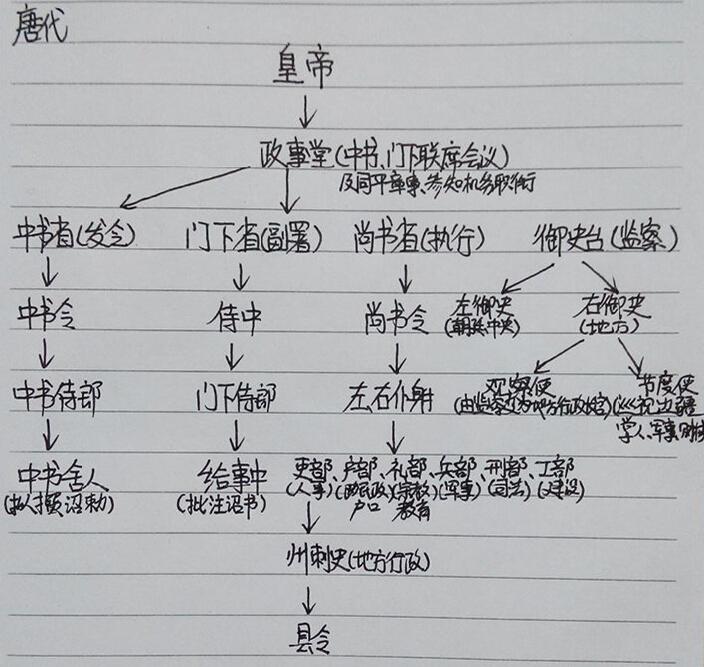 唐代
皇帝
政事堂(中书、门下联席会议)
及同平章事、参知机务职衔
中书省(发令) 门下省(副署) 尚书省(执行) 御史台(监察)
中书令 侍中 尚书令 左御史 右御史
(中央) (地方)
中书侍郎 门下侍郎 左,右仆射 观察使 节度使
(由监察 为地方行政长官) (巡视边疆
军事
中书舍人 给事中 吏部、户部、礼部、兵部、刑部、工部
(拟撰诏敕) (批注诏书) (人事) (民政 (宗教 (军事) (司法) (建设)
户口 教育
州刺史(地方行政)
县令